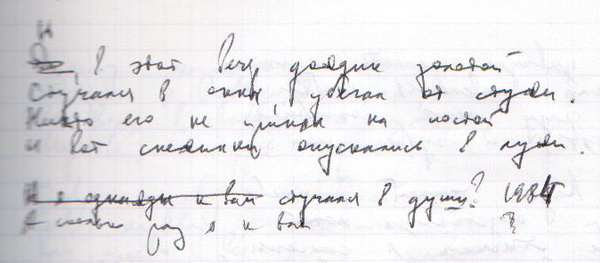 И
в этот вечер дождик золотой
Стучался в окна, убегал от стужи.
Никто его не принял на постой
И вот снежинки опускались в лужи.
И я однажды к вам стучался в душу? 198
А сколько раз я к вам ?